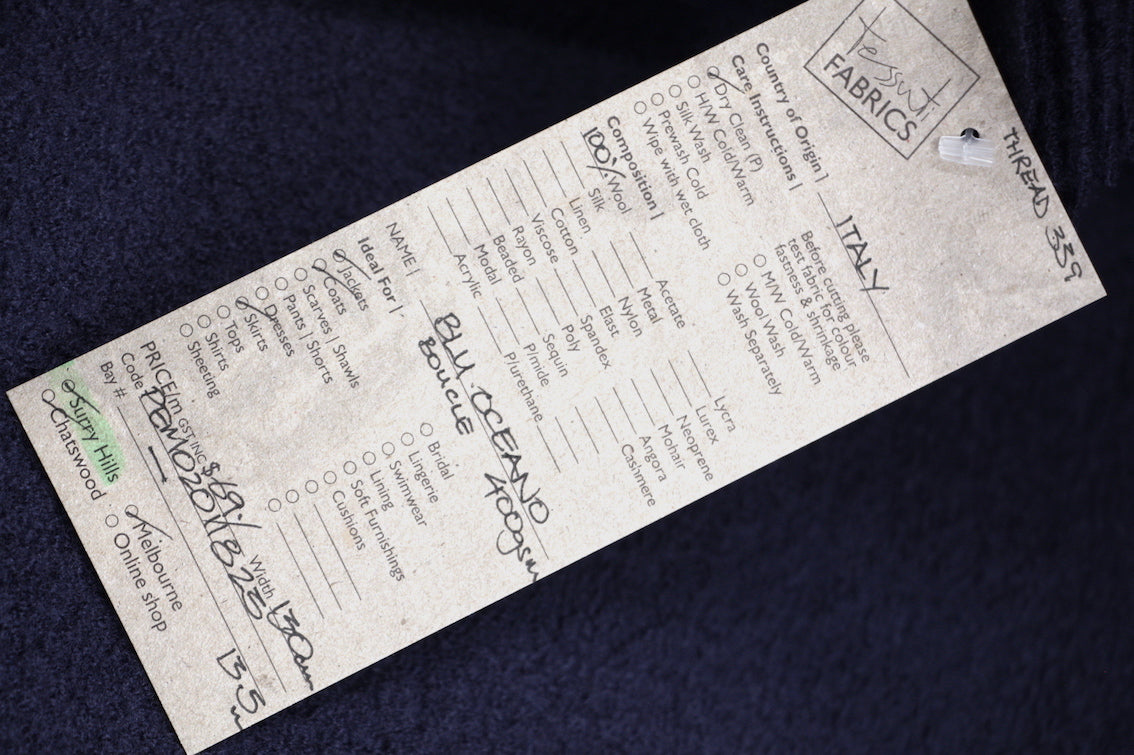 THREAD 339
tessuti
FABRICS
Country of Origin | ITALY
Care Instructions |
Dry Clean (P)
H/W Cold/Warm
Silk Wash
Prewash Cold
Wipe with wet cloth
Before cutting please
test fabric for colour
fastness & shrinkage
M/W Cold/Warm
Wool Wash
Wash Separately
Composition |
100% Wool
Silk
Linen
Cotton
Viscose
Rayon
Beaded
Modal
Acrylic
Acetate
Metal
Nylon
Elast
Spandex
Poly
Sequin
P/mide
P/urethane
Lycra
Lurex
Neoprene
Mohair
Angora
Cashmere
NAME | BLU OCEANO 400gsm
BOUCLE
Ideal For |
Jackets
Coats
Scarves | Shawls
Pants | Shorts
Dresses
Skirts
Tops
Shirts
Sheeting
Bridal
Lingerie
Swimwear
Lining
Soft Furnishings
Cushions
PRICE/m GST INC $69/ Width 130cm
Code
Bay # 13.5m
Surry Hills
Chatswood
Melbourne
Online shop